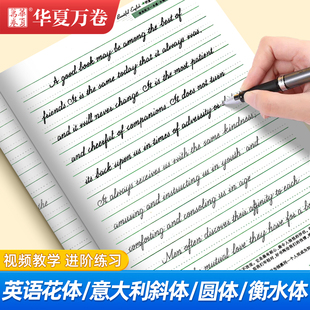 华夏万卷
A good book may be among the best of
friends. It is the same today that it always was,
and it will never change. It is the most patient
and cheerful of companions. It does not turn
its back upon us in times of adversity or
It always receives us with the same kindness,
amusing and instructing us in youth, and
comforting and consoling us in age.
Men often discover their affinity to each
mutual love they have for a
视频教学 进阶练习
英语花体/意大利斜体/圆体/衡水体